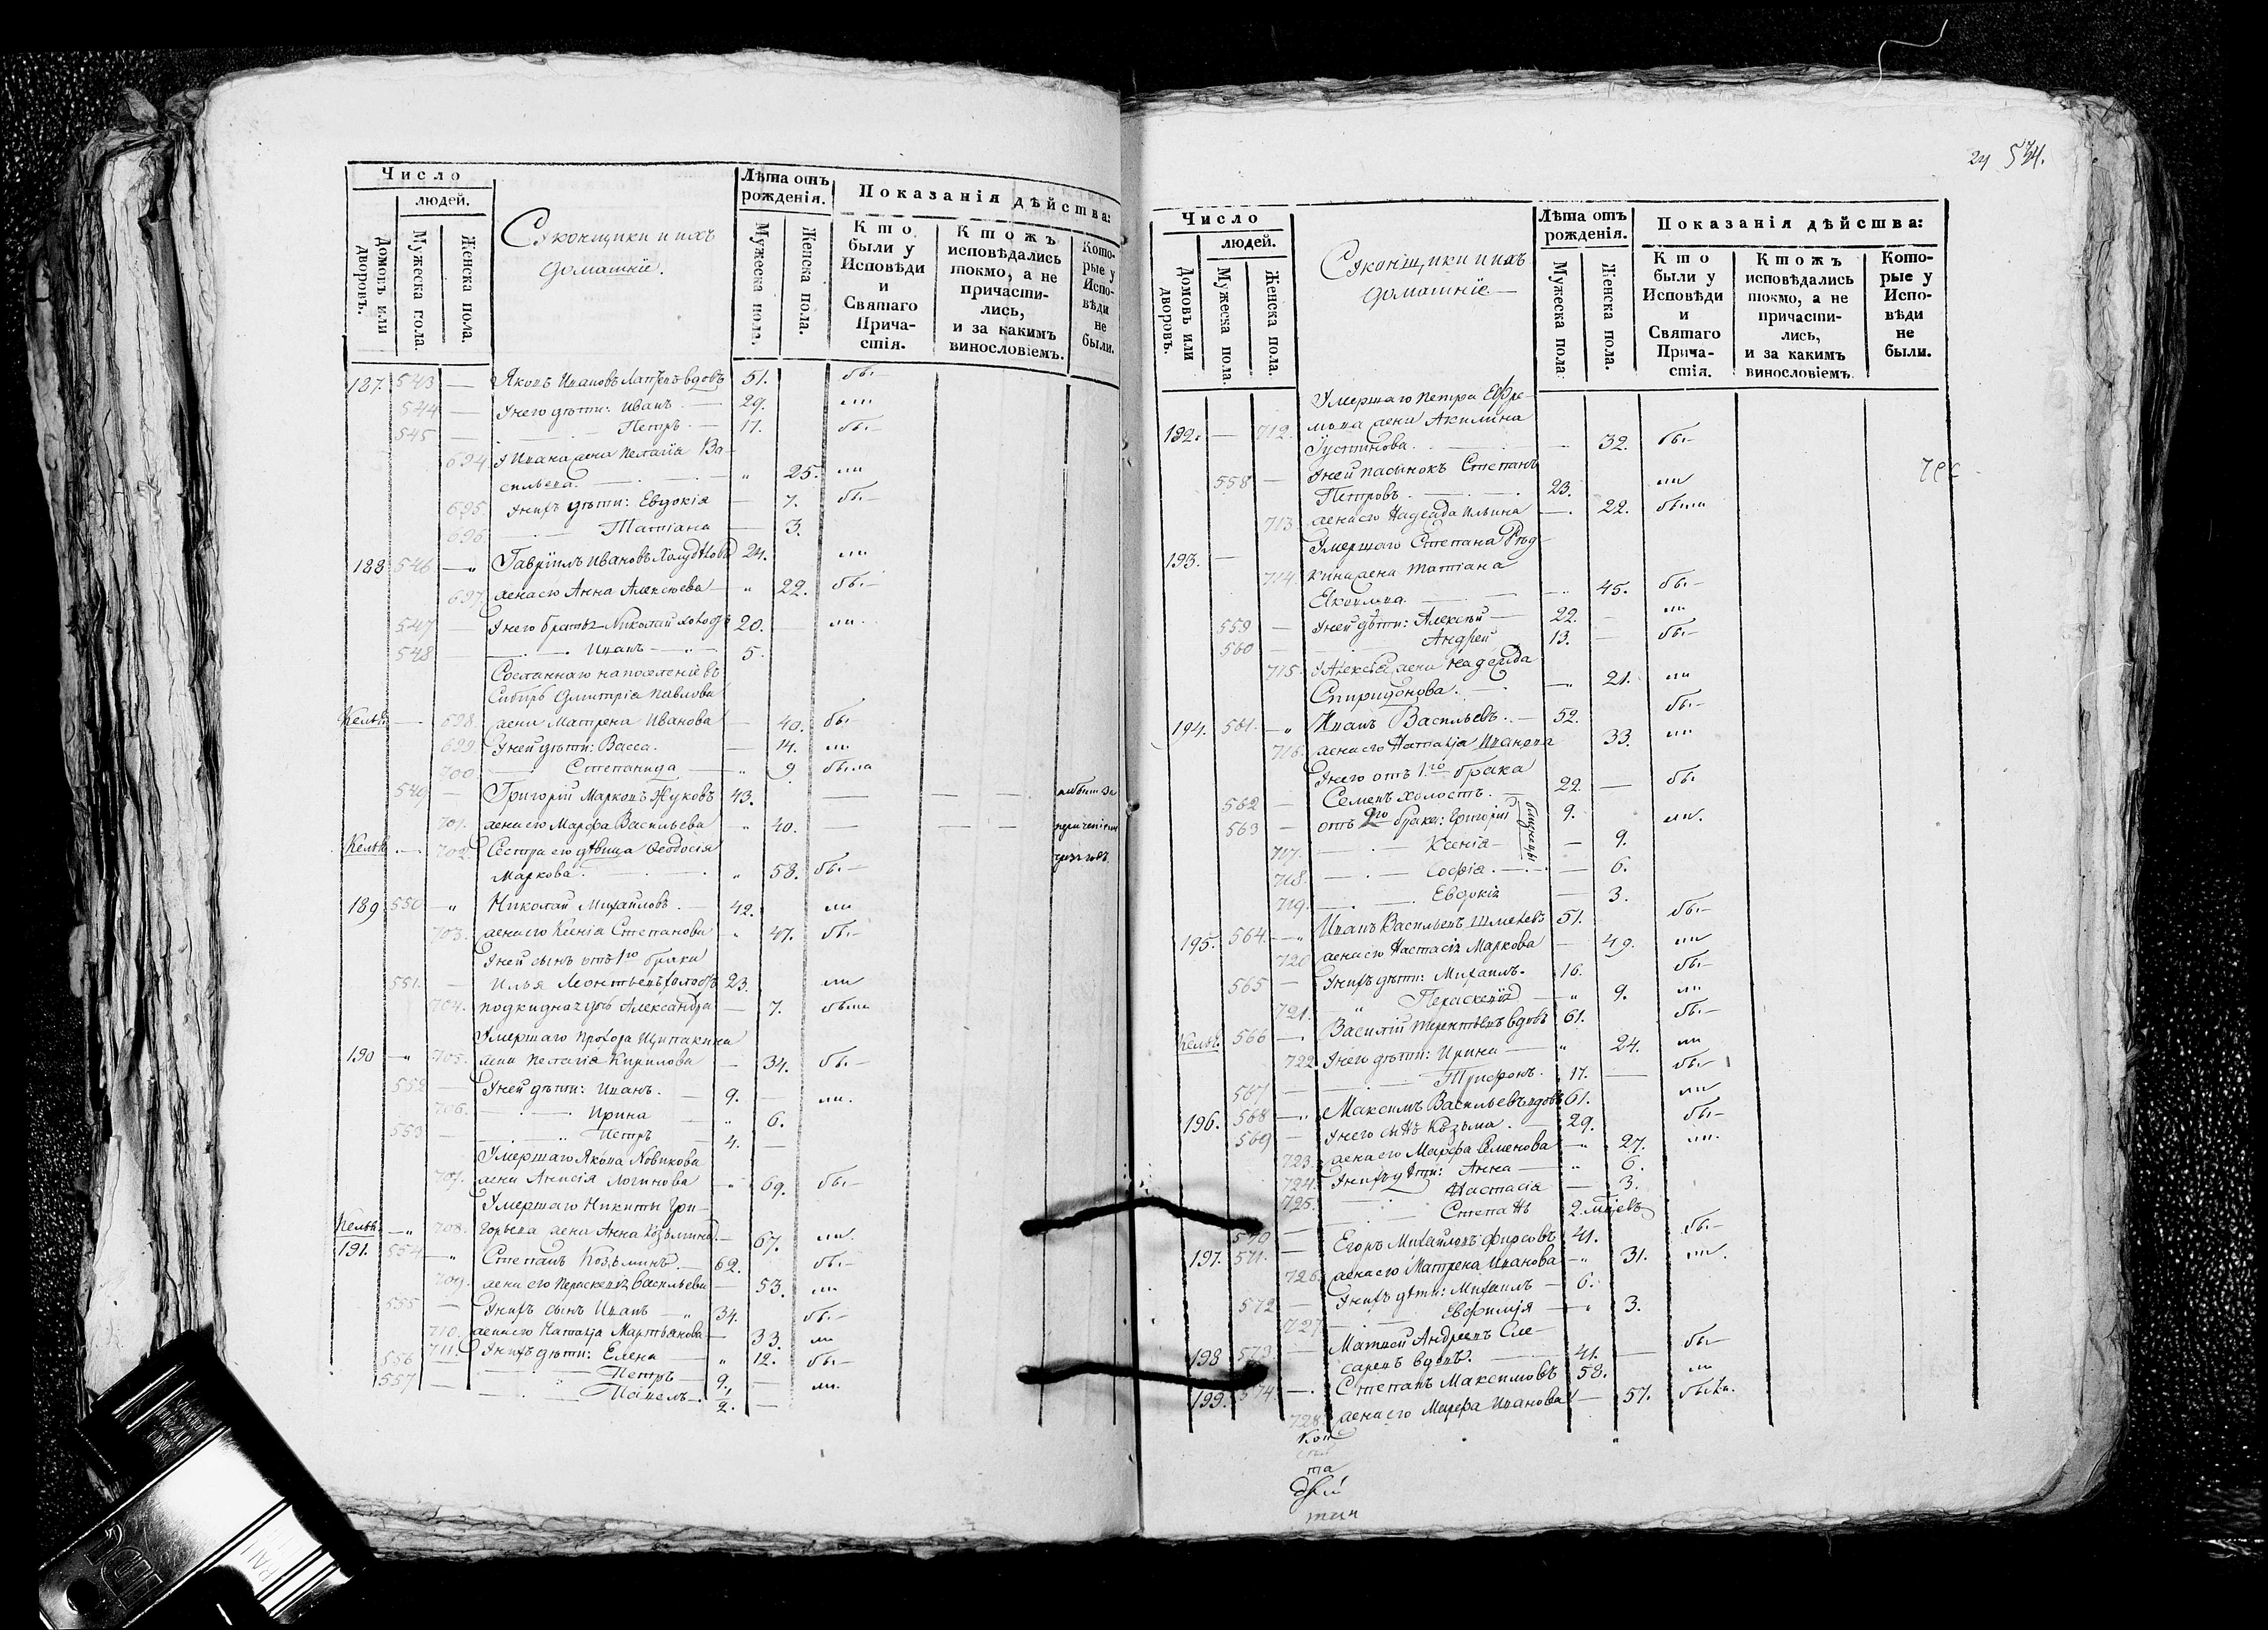 Число
людей.
Домовъ или дворовъ.
Мужеска пола.
Женска пола.
домашніе.
Лѣта отъ рожденія.
Мужеска пола.
Женска пола.
Показанія дѣйства:
Кто были у Исповѣди и Святаго Прича-стія.
Ктожъ исповѣдались токмо, а не причасти-лись, и за какимъ винословіемъ.
Кото-рые у Испо-вѣди не были.
187. 543 — Яковъ Ивановъ вдовъ 51. бы-
544 — У него дѣти: Иванъ — 29. ли
545 — Петръ — 17. бы-
694 У Ивана жена Пелагія Ва-
сильева. — " 25. ли
695 У нихъ дѣти: Евдокія — 7. бы-
696 Татіана — 3.
188 546 — " Гавріилъ Ивановъ 24. ли
697 жена его Анна Алексѣева — " 22. бы-
547 — У него братъ Николай холостъ 20. — ли.
548 — Иванъ — " 5.
Сосланнаго на поселеніе въ
Сибирь Димитрія Павлова
Келья — 698. жена Матрена Иванова — 40. бы-
699 У ней дѣти: Васса. — 14. ли
700 Степанида — " 9 была
549 — Григорій Марковъ Жуковъ 43. — —
701. жена его Марфа Васильева " 40. — —
Келья — 702. Сестра его дѣвица Ѳеодосія
Маркова. " 58. бы-
189 550 — " Николай Михайловъ. — 42. ли
703. жена его Ксенія Степанова " 47. бы-
У ней сынъ отъ 1го брака
551. — Илья Леонтьевъ холостъ 23. ли
704. подкидышъ Александра — 7. была
Умершаго Прохора
190 — " 705. жена Пелагія Кирилова — 34. бы-
552 — У ней дѣти: Иванъ. — 9. — ли.
706. Ирина — " 6.
553 — " Петръ — 4. —
Умершаго Якова Новикова
707. жена Анисія Логинова — " 69. бы-
Умершаго Никиты Гри-
Келья — " 708. горьева жена Анна Козьмина — 67. ли.
191. 554 — " Степанъ Козьминъ. — 62. бы-
709. жена его Пераскевія Васильева — 53. ли
555 — У нихъ сынъ Иванъ — " 34. бы-
710. жена его Наталја Мартьянова — 33. ли
711. У нихъ дѣти: Елена — " 12. бы-
556 — Петръ — 9. — ли.
557 — Павелъ — 2. —
24 574.
Число
людей.
Домовъ или дворовъ.
Мужеска пола.
Женска пола.
домашніе —
Лѣта отъ рожденія.
Мужеска пола.
Женска пола.
Показанія дѣйства:
Кто были у Исповѣди и Святаго Прича-стія.
Ктожъ исповѣдались токмо, а не причасти-лись, и за какимъ винословіемъ.
Кото-рые у Испо-вѣди не были.
Умершаго Петра Ефре-
192. — 712. мова жена Акилина
Іустинова. — 32. бы-
558 — У ней пасынокъ Степанъ
Петровъ. — 23. ли
713. жена его Надежда Ильина — 22. были
Умершаго Степана
193. — 714. жена Татіана
— " 45. бы-
559 — У ней дѣти: Алексѣй — 22. — ли
560 — Андрей 13. — бы-
715. У Алексѣя жена Надежда
Спиридонова. — " 21. ли
194. 561 — " Иванъ Васильевъ. — 52. бы-
716. жена его Наталја Иванова 33. ли
У него отъ 1го брака
562 — Семенъ холостъ. — 22. — бы
563 — отъ 2го брака: Григорій 9. ли.
близнецы
717. Ксенія — — 9.
718. Софія. — 6.
719. Евдокія — 3.
195. 564 — " Иванъ Васильевъ Шмелевъ 51. бы-
720 жена его Настасія Маркова — 49. ли
565 — У нихъ дѣти: Михаилъ. 16. бы-
721. " Пераскевія — " 9. ли
Келья. 566 — Василій Терентьевъ вдовъ 61. бы-
722. У него дѣти: Ирина — " 24. ли
567 — Трифонъ. 17. — бы-
196. 568 — " Максимъ Васильевъ вдовъ 61. ли
569 — У него сынъ Козьма. — 29. бы-
723. жена его Марфа Семенова — " 27. ли.
724. У нихъ дѣти: Анна — " 6.
725. Настасія — 3.
570 — Степанъ 2. мцевъ
197. 571. — Егоръ Михайловъ Фирсовъ 41. бы-
726. жена его Матрена Иванова — " 31. ли.
572 — У нихъ дѣти: Михаилъ — 6.
727 Евфимія — " 3.
Матвей Андреевъ Сле-
198 573 — саревъ вдовъ. — 41. — бы-
199. 574 — . Степанъ Максимовъ 58. ли
728. жена его Марфа Иванова — 57. были.